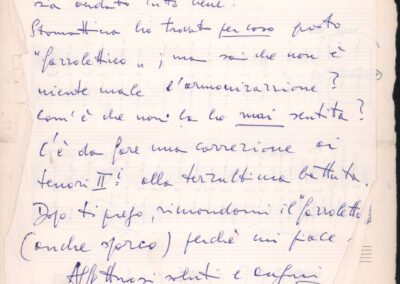 sia andato tutto bene.
Stamattina ho trovato per caso questo
"fazzolettico" ; ma sai che non è
niente male l'armonizzazione?
Com'è che non la ho mai sentita?
C'è da fare una correzione ai
tenori II! alla terzultima battuta.
Dopo ti prego, rimandami il "fazzoletto"
(anche sporco) perchè mi piace.
Affettuosi saluti e auguri